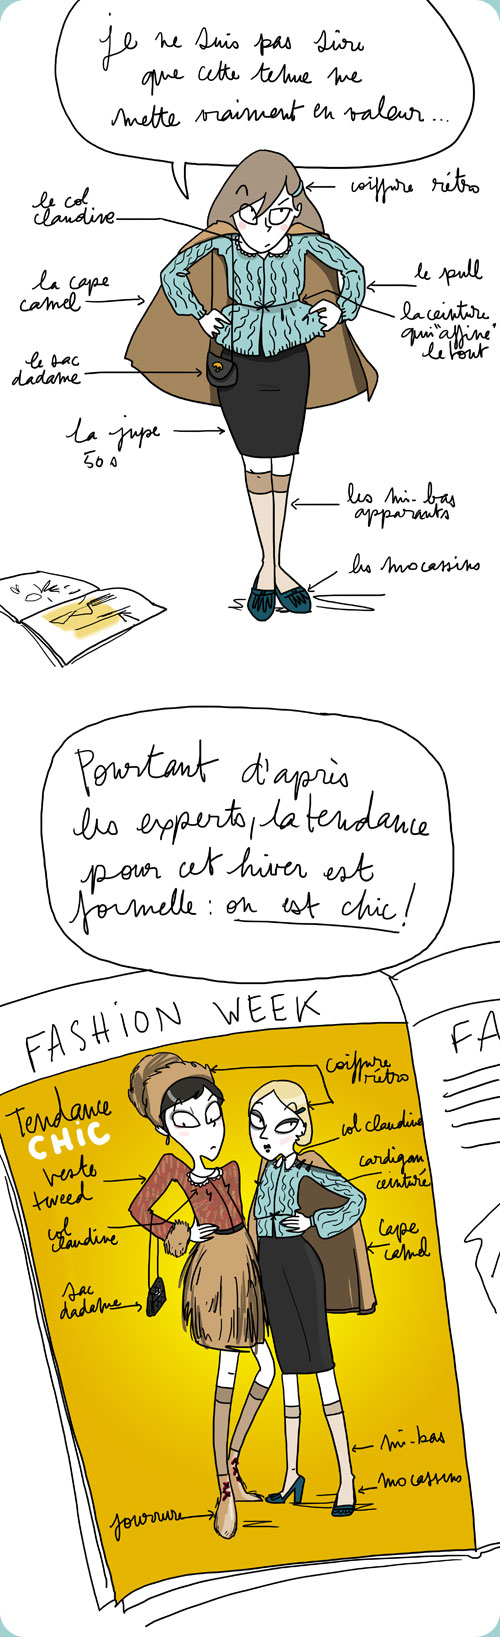 je ne suis pas sûre
que cette tenue me
mette vraiment en valeur...
coiffure rétro
le col
claudine
le pull
la cape
camel
la ceinture
qui "affine"
le tout
le sac
dadame
la jupe
50s
les mi-bas
apparants
les mocassins
Pourtant d'après
les experts, la tendance
pour cet hiver est
formelle : on est chic !
FASHION WEEK
FA
Tendance
CHIC
coiffure
rétro
col claudine
veste
tweed
cardigan
ceinturé
col
claudine
cape
camel
sac
dadame
mi-bas
mocassins
fourrure